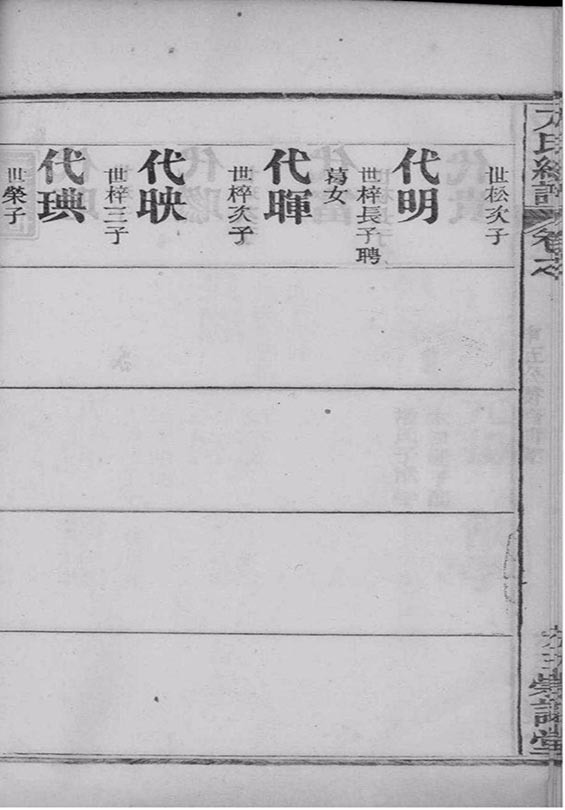 世松次子
代明
世梓長子聘
葛女
代暉
世梓次子
代映
世梓三子
代琠
世榮子